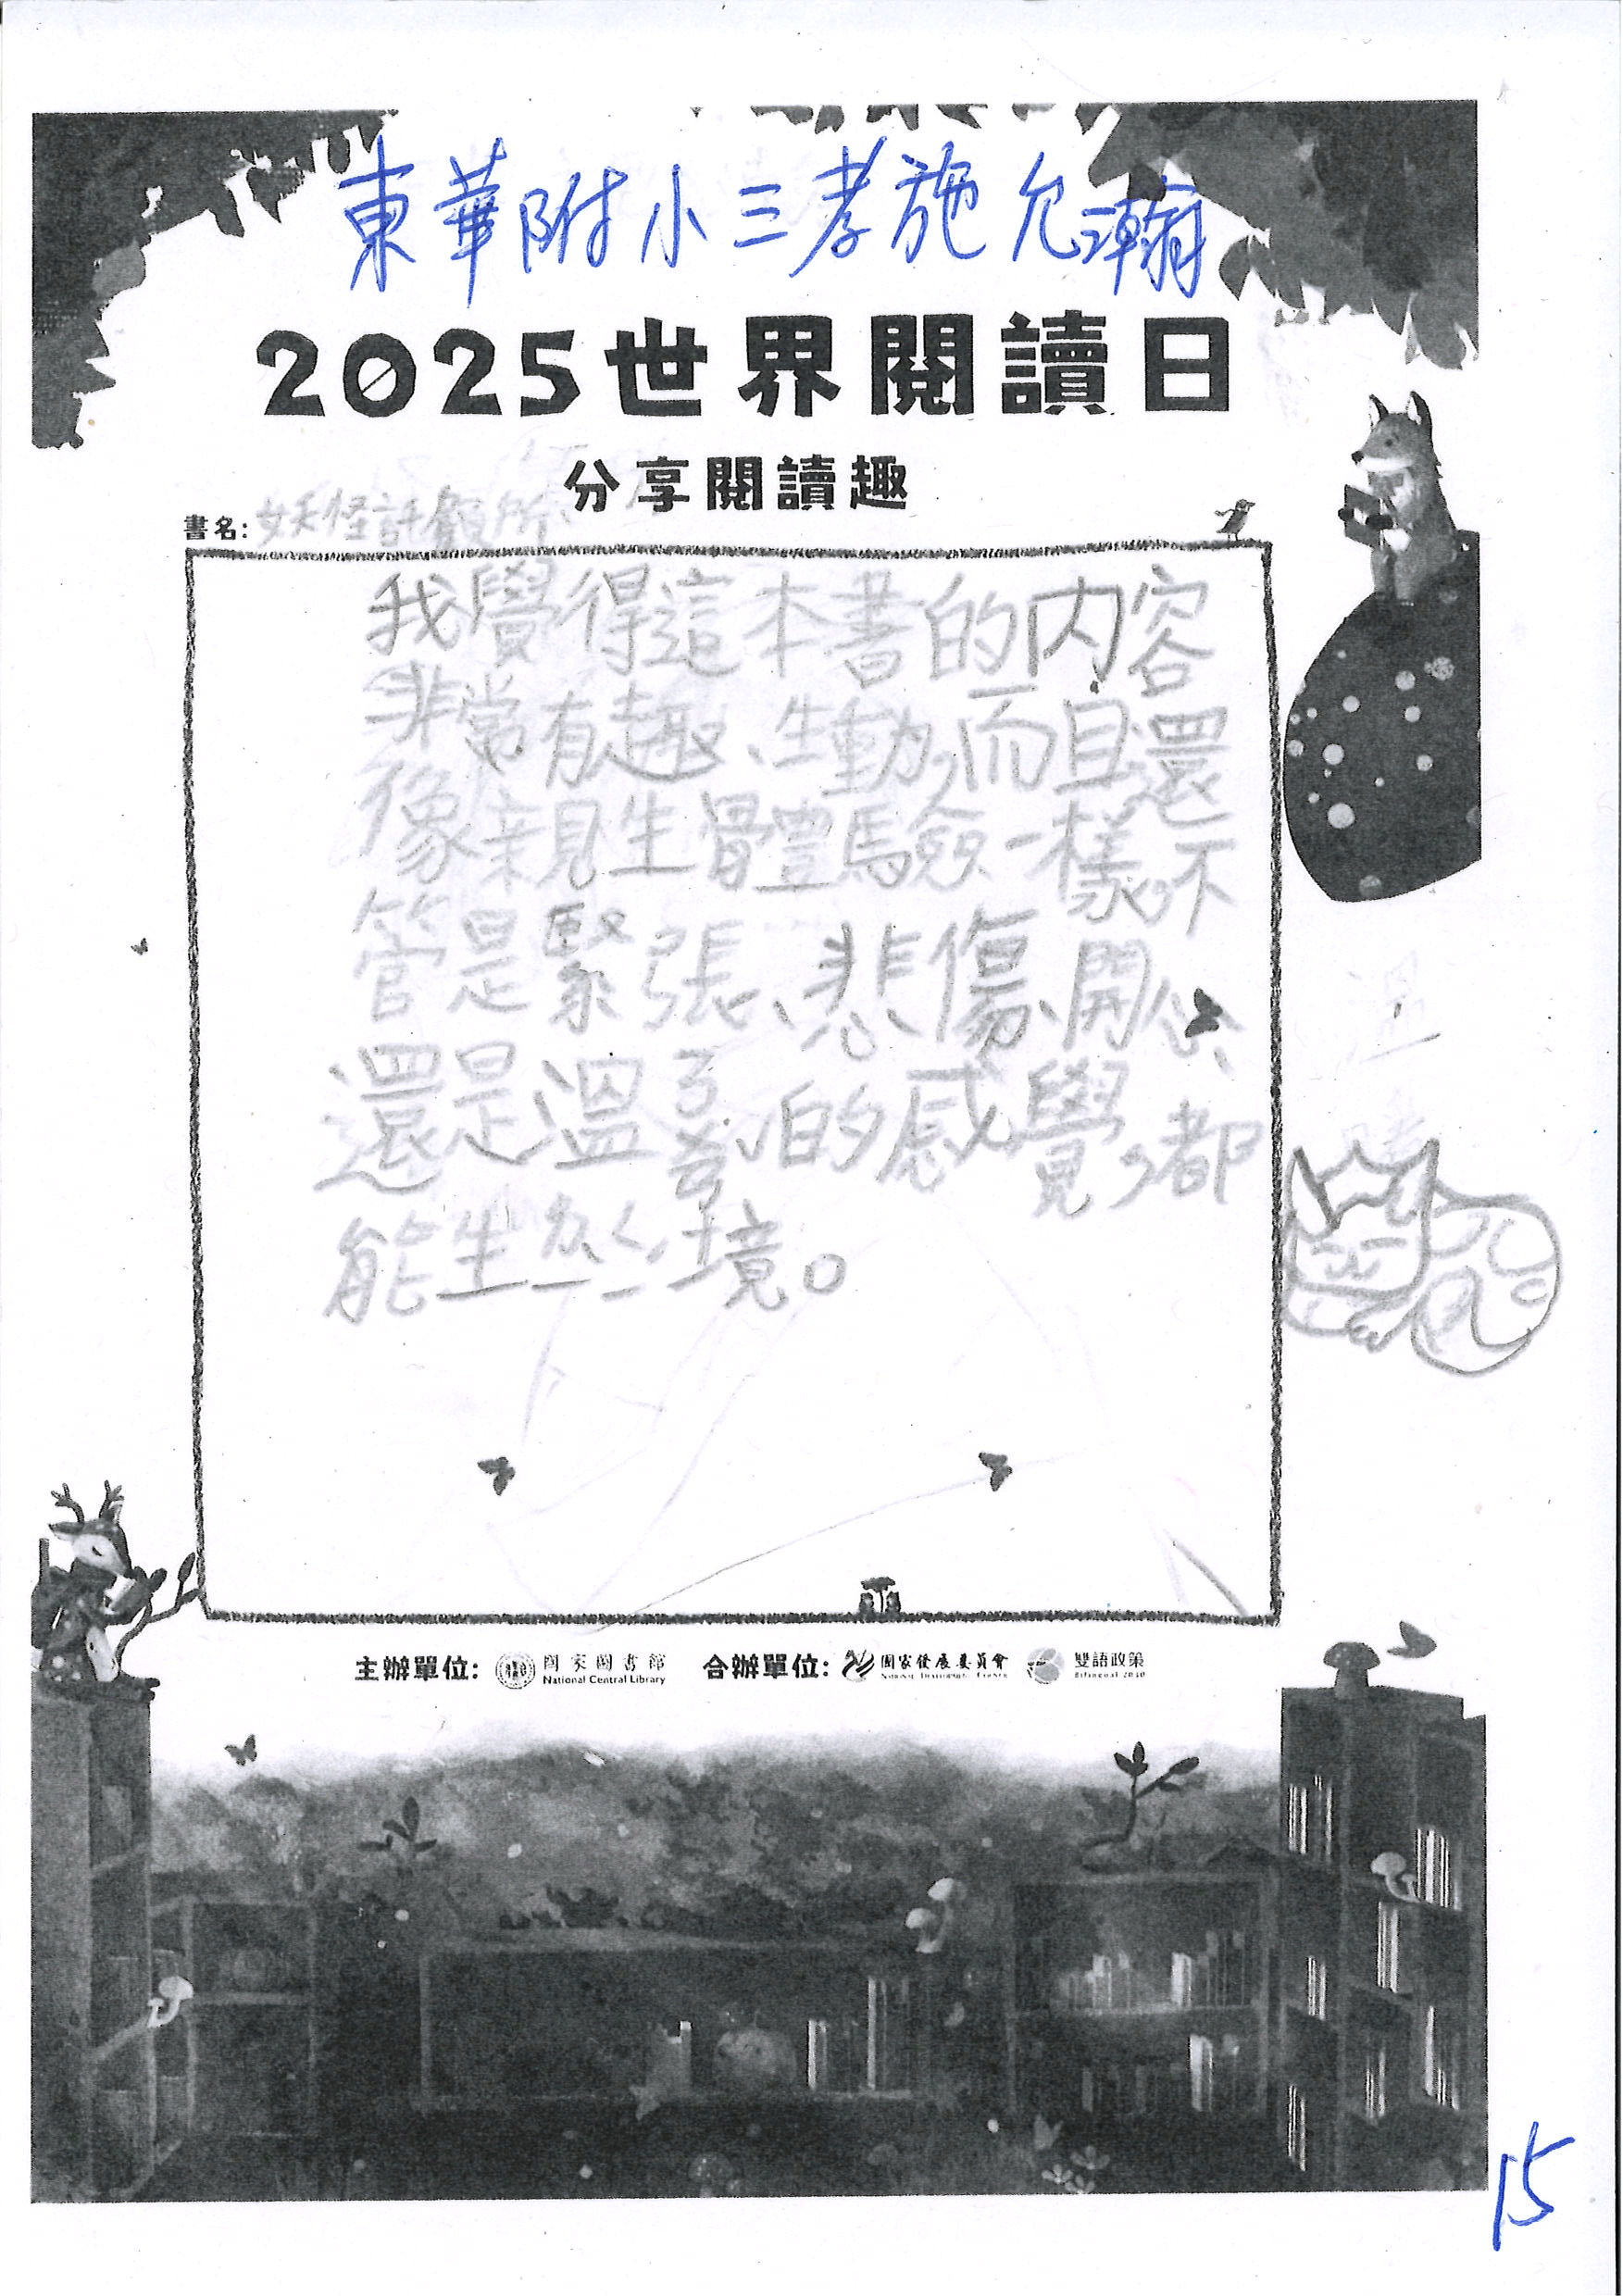 東華附小三孝施允瀚
2025世界閱讀日
分享閱讀趣
書名:妖怪託顧所
我覺得這本書的內容
非常有趣、生動,而且還
像親生體驗一樣,不
管是緊張、悲傷、開心、
還是溫ㄒㄧㄣ的感覺,都
能生ㄌㄧㄣˊㄑㄧˊ境。
主辦單位: 國家圖書館 National Central Library 合辦單位: 國家發展委員會 雙語政策 Bilingual 2030
15